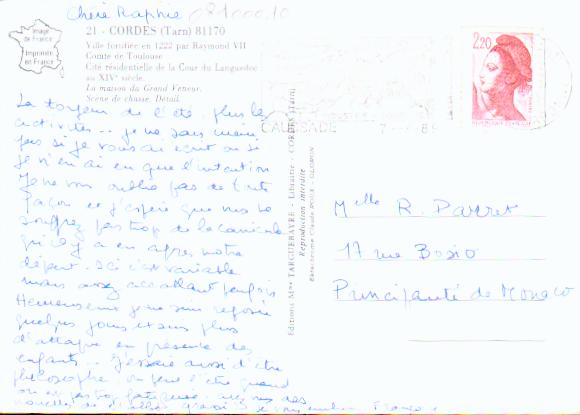 Chère Raphie
081000 10
Image de France
Imprimée en France
21 - CORDES (Tarn) 81170
Ville fortifiée en 1222 par Raymond VII
Comte de Toulouse
Cité résidentielle de la Cour du Languedoc
au XIVe siècle.
La maison du Grand Veneur.
Scène de chasse. Détail.
La torpeur de l'été, plus les
activités... je ne sais même
pas si je vous ai écrit ou si
je n'en ai eu que l'intention
Je ne vous oublie pas de toute
façon et j'espère que vous ne
souffrez pas trop de la canicule
qu'il y a eu après notre
départ. Ici c'est variable
mais assez accablant parfois
Heureusement je me suis reposée
quelques jours et suis plus
d'attaque en présence des
enfants... J'essaie aussi d'être
philosophe, on peut l'être quand
on est pas trop fatigué. avez vous des
nouvelles de
je vous embrasse France
CAUSSADE 7
2,20
Editions Mme TARGUEBAYRE - Librairie - CORDES (Tarn)
Reproduction interdite
Melle R. Parret
17 rue Bosio
Principauté de Monaco